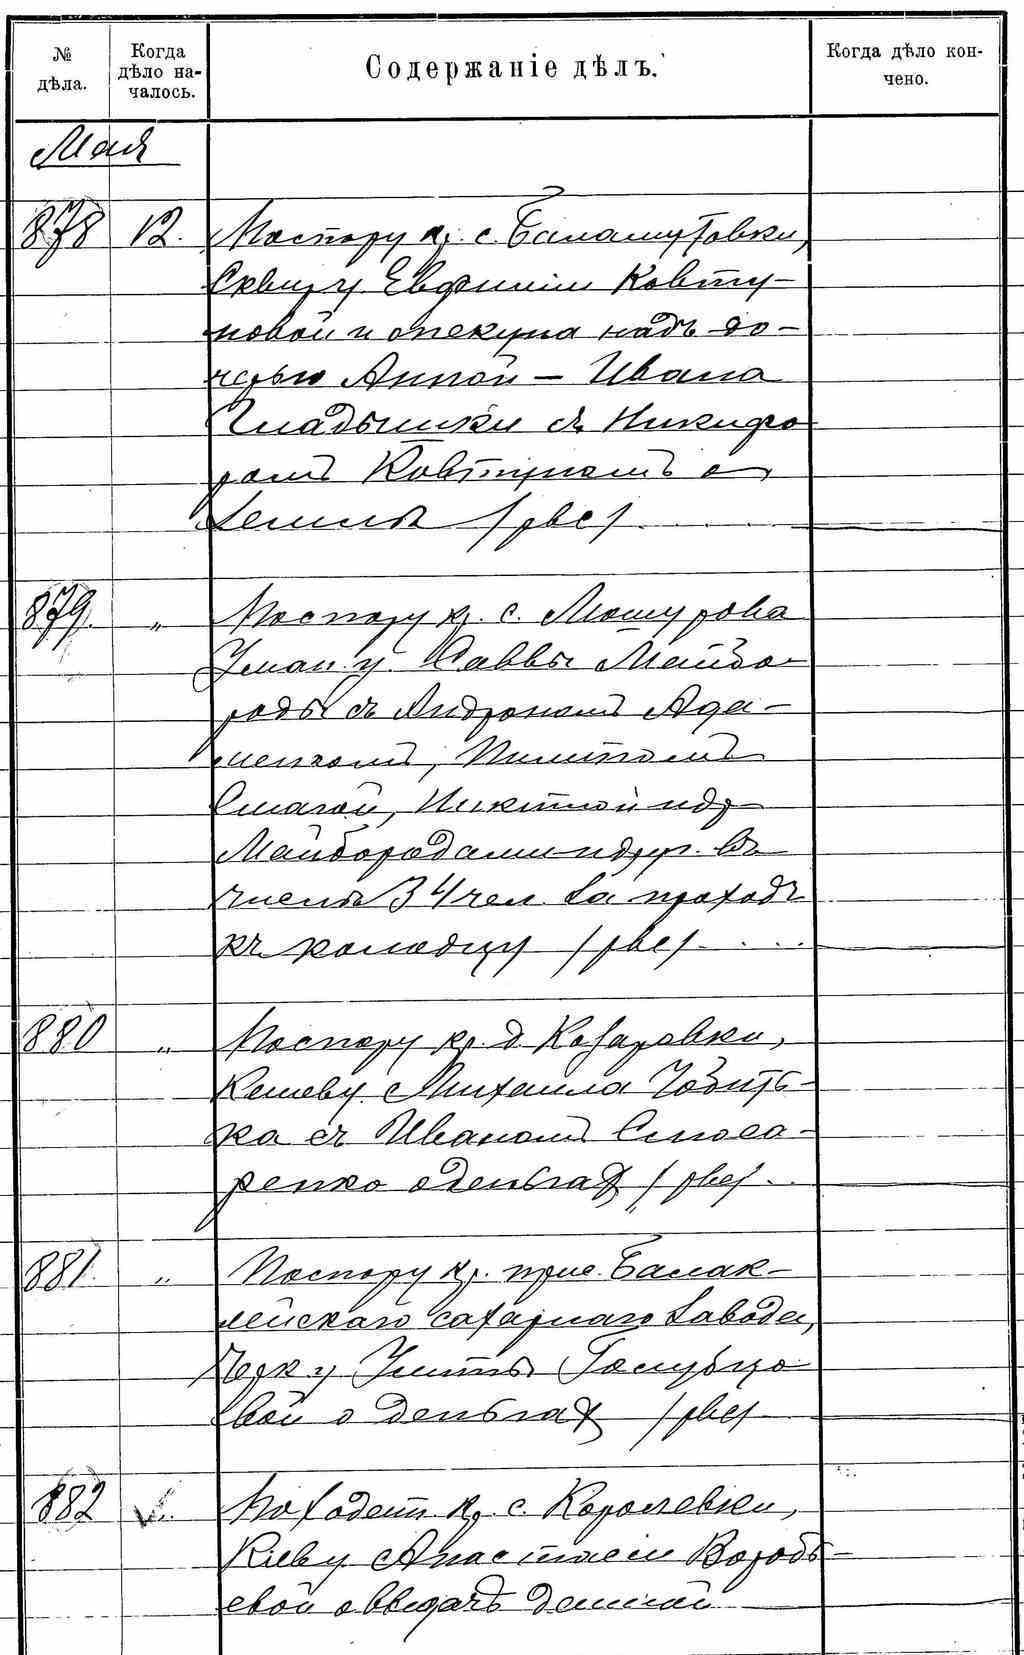 № дѣла.
Когда дѣло началось.
Содержаніе дѣлъ.
Когда дѣло кончено.
Мая
878 12. По спору кр. с. Баламутовки,
Сквир. у. Евфиміи Ковту-
новой и опекуна надъ до-
черью Анной – Ивана
Гладышки съ Никифо
ромъ Ковтуномъ о
землѣ /рве/
879. " По спору кр. с. Машурова
Уман. у. Саввы Майбо-
роды съ Андрономъ Ада-
менкомъ, Пилипомъ
Никитой и др
Майбородами и друг. въ
числѣ 34 чел. за проходъ
къ колодцу /рве/
880 " По спору кр. д. Козаровки,
Кіевск. у. Михаила
ка съ Иваномъ Слюса-
ренко о деньгах /рве/
881. " По спору кр. прис. Балак-
лейскаго сахарнаго завода,
Черк. у. Улиты Голубцо
вой о деньгах /рве/
882 " По ходат. кр. с. Королевки,
Кіев. у. Анастасіи Воробь-
евой о выдачѣ данной